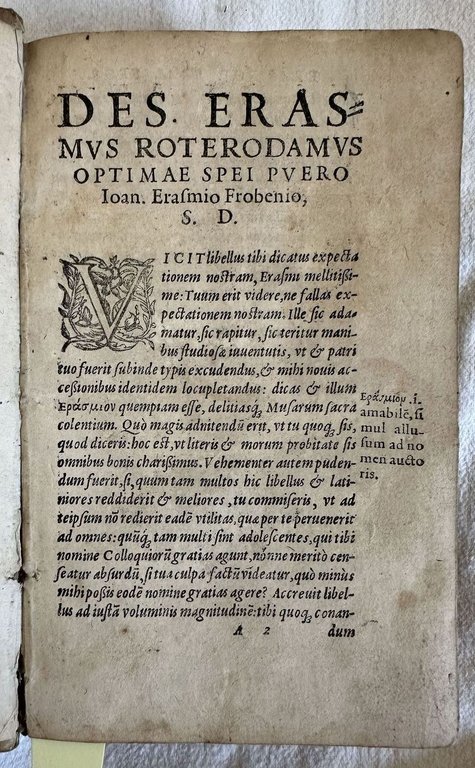 DES. ERAS=
MVS ROTERODAMVS
OPTIMAE SPEI PVERO
Ioan. Eraſmio Frobenio,
S. D.
VICIT libellus tibi dicatus expecta
tionem noſtram, Eraſmi mellitißi-
me: Tuum erit videre, ne fallas ex-
pectationem noſtram. Ille ſic ada-
matur, ſic rapitur, ſic teritur mani-
bus ſtudioſæ iuuentutis, vt & patri
tuo fuerit ſubinde typis excudendus, & mihi nouis ac-
ceßionibus identidem locupletandus: dicas & illum
Ἐράσμιον quempiam eſſe, delitiasq́; Muſarum ſacra
colentium. Quò magis adnitendũ erit, vt tu quoq; ſis,
quod diceris: hoc eſt, vt literis & morum probitate ſis
omnibus bonis chariſſimus. Vehementer autem puden-
dum fuerit, ſi, quum tam multos hic libellus & lati-
niores reddiderit & meliores, tu commiſeris, vt ad
teipſum nõ redierit eadẽ vtilitas, qua per te peruenerit
ad omnes: quũq́; tam multi ſint adoleſcentes, qui tibi
nomine Colloquiorũ gratias agunt, nõnne meritò cen-
ſeatur abſurdũ, ſi tua culpa factũ videatur, quò minùs
mihi poßis eodẽ nomine gratias agere? Accreuit libel-
lus ad iuſtã voluminis magnitudinẽ: tibi quoq; conan-
A 2 dum
Ἐράσμιον. i.
amabilẽ, ſi
mul allu-
ſum ad no
men aucto
ris.